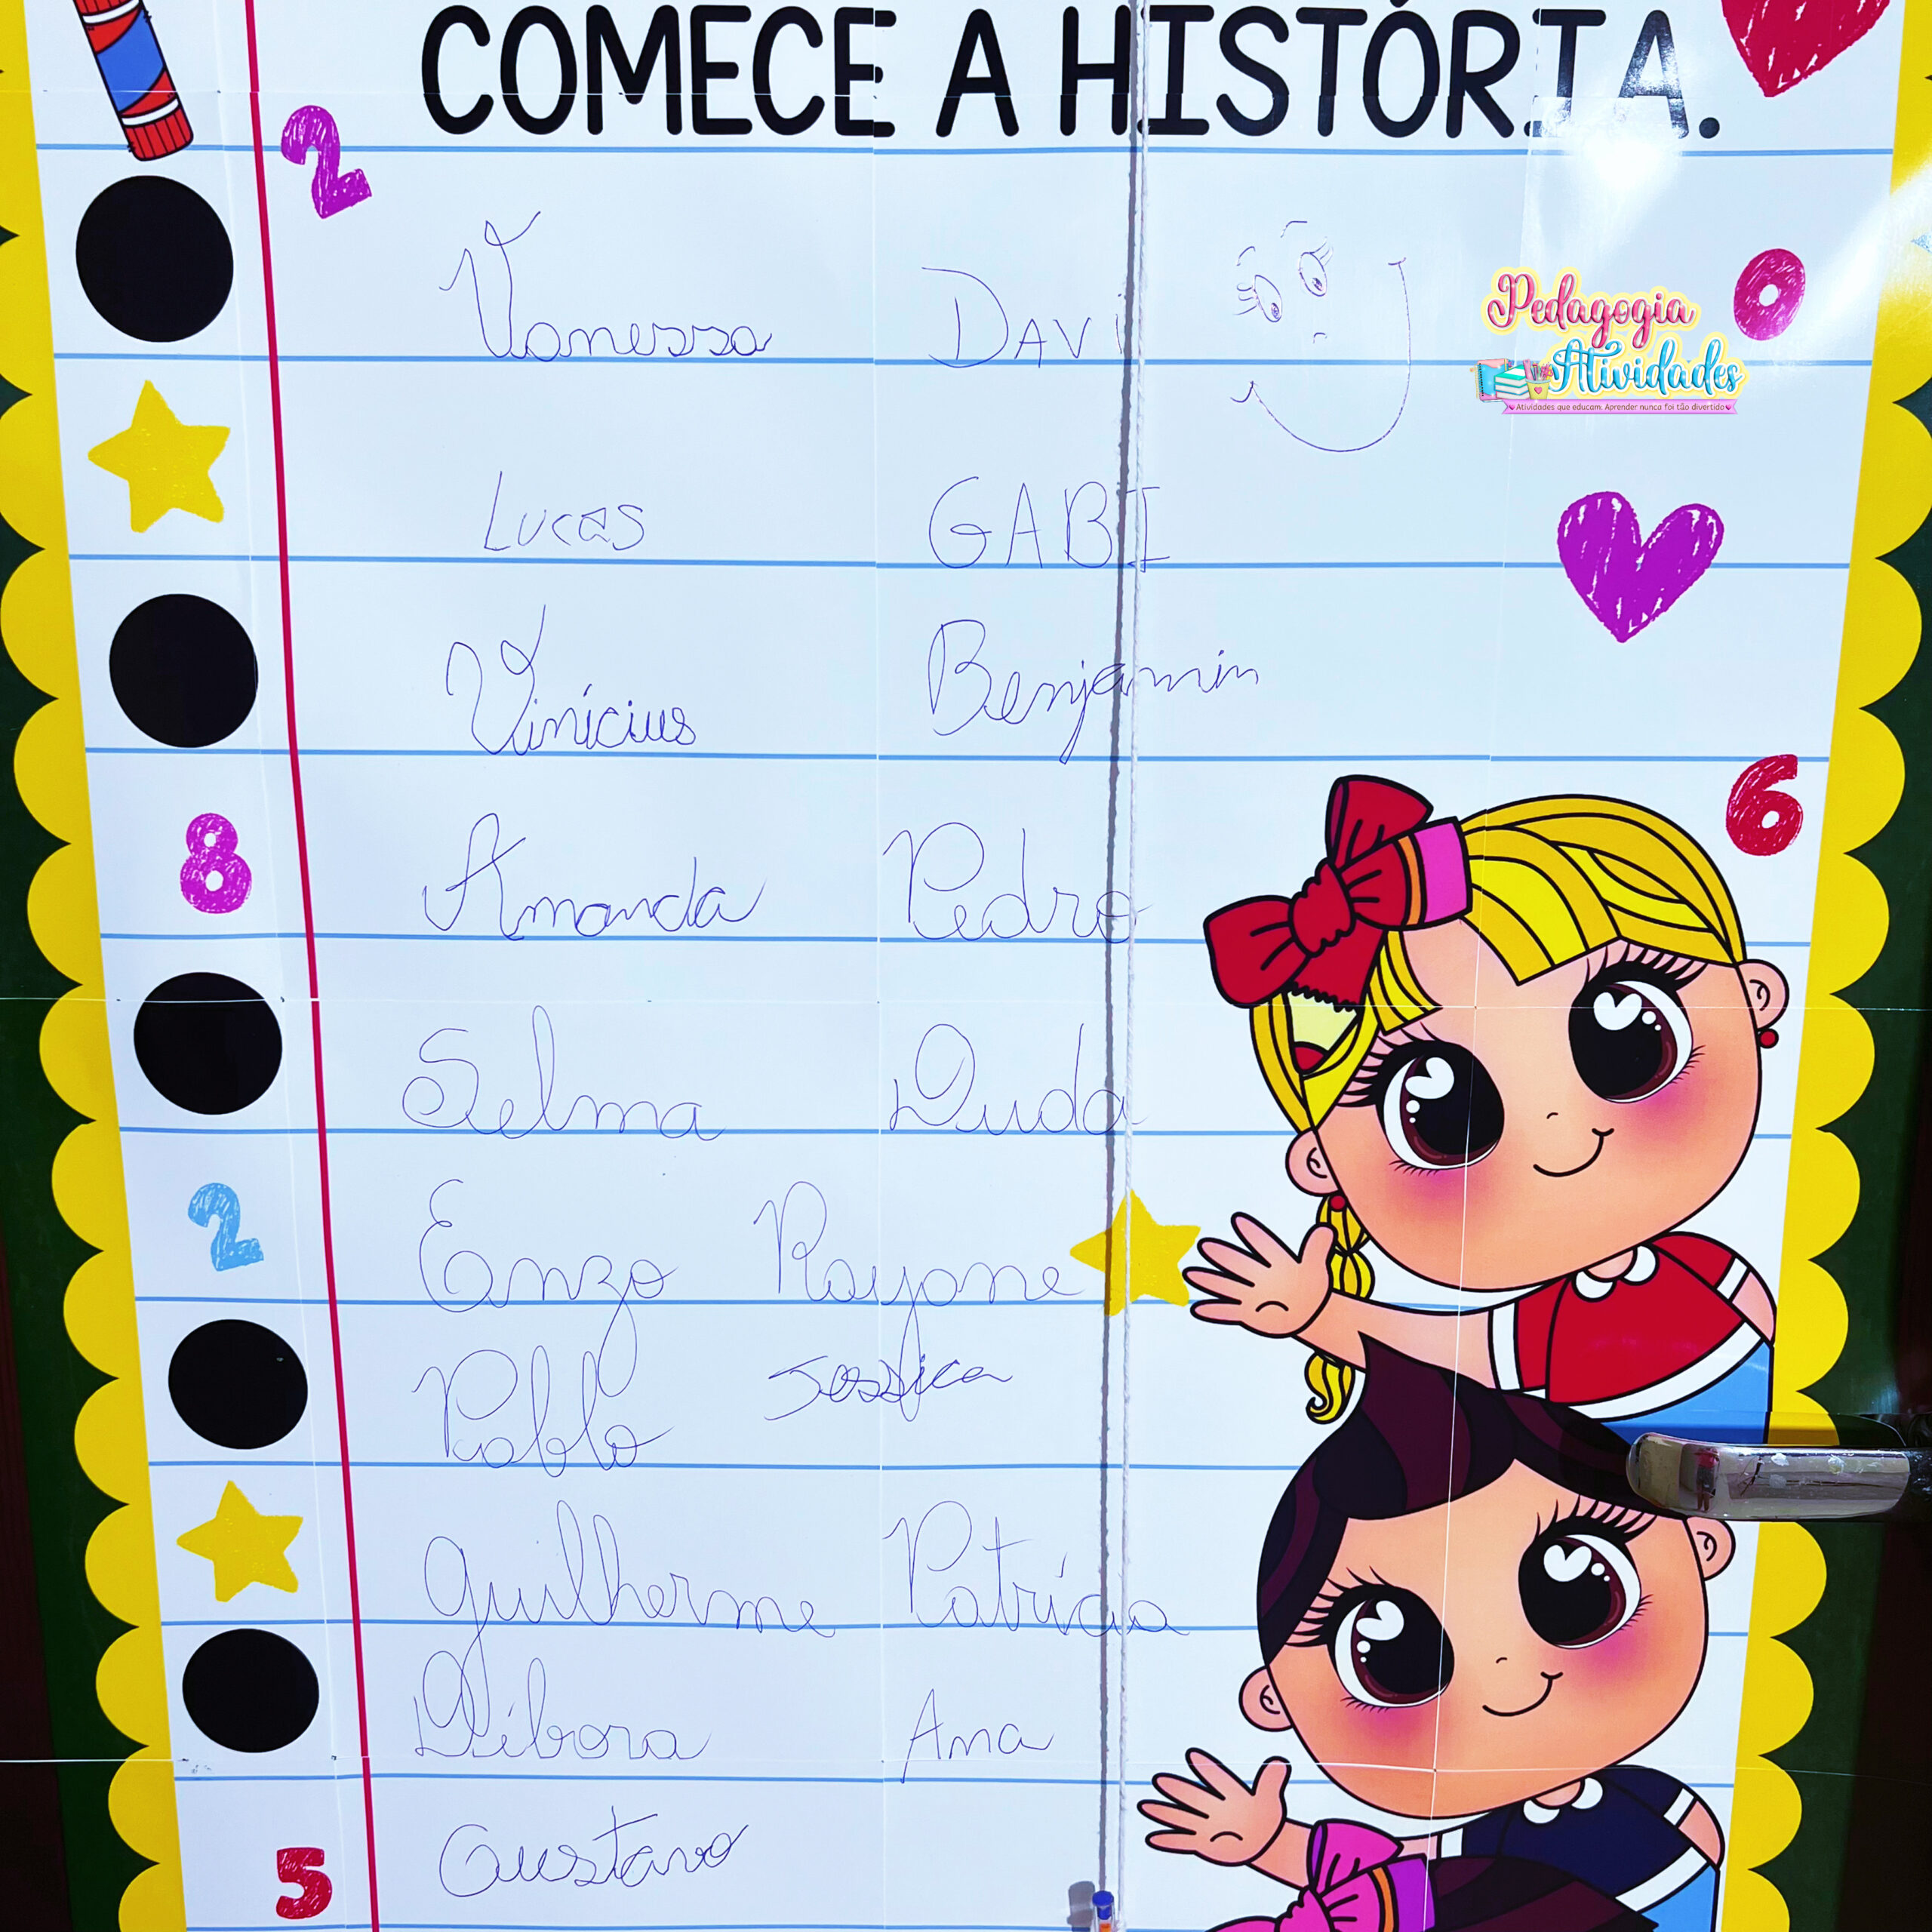 COMECE A HISTÓRIA.
2
Vanessa DAVI
Pedagogia
Atividades
Atividades que educam. Aprender nunca foi tão divertido
0
Lucas GABI
Vinícius Benjamin
6
8 Amanda Pedro
Selma Duda
2 Enzo Rayane
Pablo Jessica
Guilherme Patrícia
Débora Ana
5 Gustavo